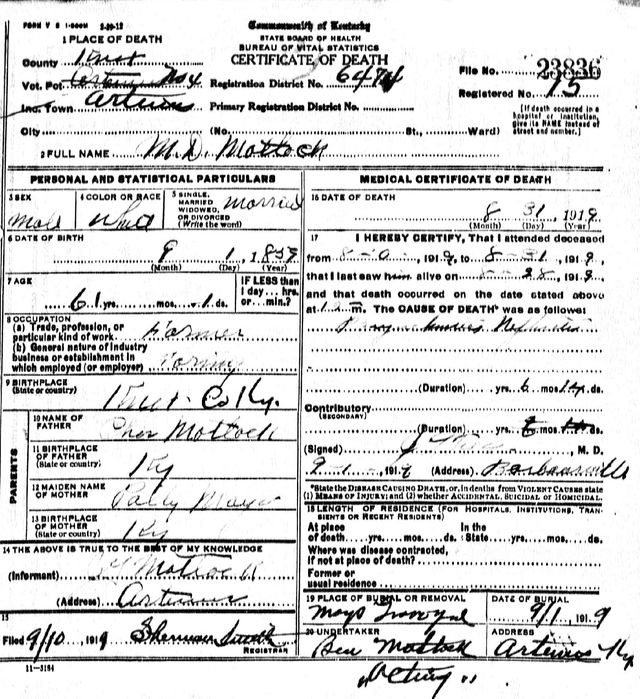 FORM V S 1-500M 3-29-12
Commonwealth of Kentucky
STATE BOARD OF HEALTH
BUREAU OF VITAL STATISTICS
CERTIFICATE OF DEATH
1 PLACE OF DEATH
County Knox
Vot. Pct.
Inc. Town Artemus
City (No. St., Ward)
Registration District No. 6474
Primary Registration District No.
File No. 23836
Registered No. 15
[If death occurred in a hospital or institution, give its NAME instead of street and number.]
2 FULL NAME M.D. Mattock
PERSONAL AND STATISTICAL PARTICULARS
3 SEX
Male
4 COLOR OR RACE
White
5 SINGLE, MARRIED WIDOWED, OR DIVORCED (Write the word)
Married
6 DATE OF BIRTH
(Month) (Day) (Year)
7 AGE
61 yrs. mos. 1 ds.
IF LESS than 1 day... hrs. or... min.?
8 OCCUPATION
(a) Trade, profession, or particular kind of work Farmer
(b) General nature of Industry business or establishment in which employed (or employer) Farming
9 BIRTHPLACE
(State or country)
Knox Co Ky.
PARENTS
10 NAME OF FATHER
Mattock
11 BIRTHPLACE OF FATHER
(State or country)
Ky
12 MAIDEN NAME OF MOTHER
13 BIRTHPLACE OF MOTHER
(State or country)
Ky
14 THE ABOVE IS TRUE TO THE BEST OF MY KNOWLEDGE
(Informant) Mattock
(Address) Artemus
15
Filed 9/10 1919 Sherman Smith
REGISTRAR
11-3184
MEDICAL CERTIFICATE OF DEATH
16 DATE OF DEATH
8 31, 1919
(Month) (Day) (Year)
17 I HEREBY CERTIFY, That I attended deceased
from 191 , to 8-31, 1919,
that I last saw him alive on 8-28, 1919,
and that death occurred on the date stated above
at m. The CAUSE OF DEATH* was as follows:
(Duration) yrs. 6 mos. 14 ds.
Contributory
(SECONDARY)
(Duration) yrs. mos. ds.
(Signed) M. D.
9-1-, 1919 (Address) Barbourville
*State the DISEASE CAUSING DEATH, or, in deaths from VIOLENT CAUSES state (1) MEANS OF INJURY; and (2) whether ACCIDENTAL, SUICIDAL or HOMICIDAL.
18 LENGTH OF RESIDENCE (FOR HOSPITALS, INSTITUTIONS, TRANSIENTS OR RECENT RESIDENTS)
At place of death yrs. mos. ds. In the State yrs. mos. ds.
Where was disease contracted, if not at place of death?
Former or usual residence
19 PLACE OF BURIAL OR REMOVAL
Mays Graveyard
DATE OF BURIAL
9/1, 1919
20 UNDERTAKER
Ben Mattock
ADDRESS
Artemus Ky
"Acting"